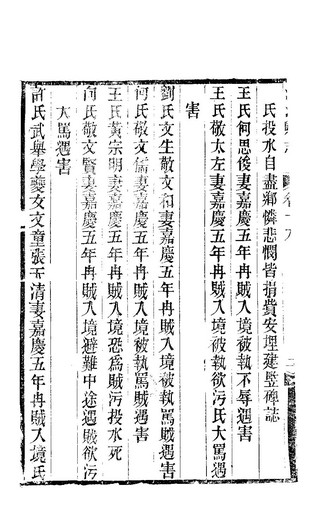 氏投水自盡鄉憐悲憫皆捐貲安埋建豎碑誌
王氏何思俊妻嘉慶五年冉賊入境被執不辱遇害
王氏敬太左妻嘉慶五年冉賊入境被執欲污氏大罵遇
害
劉氏文生敬文和妻嘉慶五年冉賊入境被執罵賊遇害
何氏敬文儒妻嘉慶五年冉賊入境被執罵賊遇害
王氏黃宗明妻嘉慶五年冉賊入境恐為賊污投水死
向氏敬文賢妻嘉慶五年冉賊入境避難中途遇賊欲污
大罵遇害
許氏武舉學夔女文童張玉清妻嘉慶五年冉賊入境氏